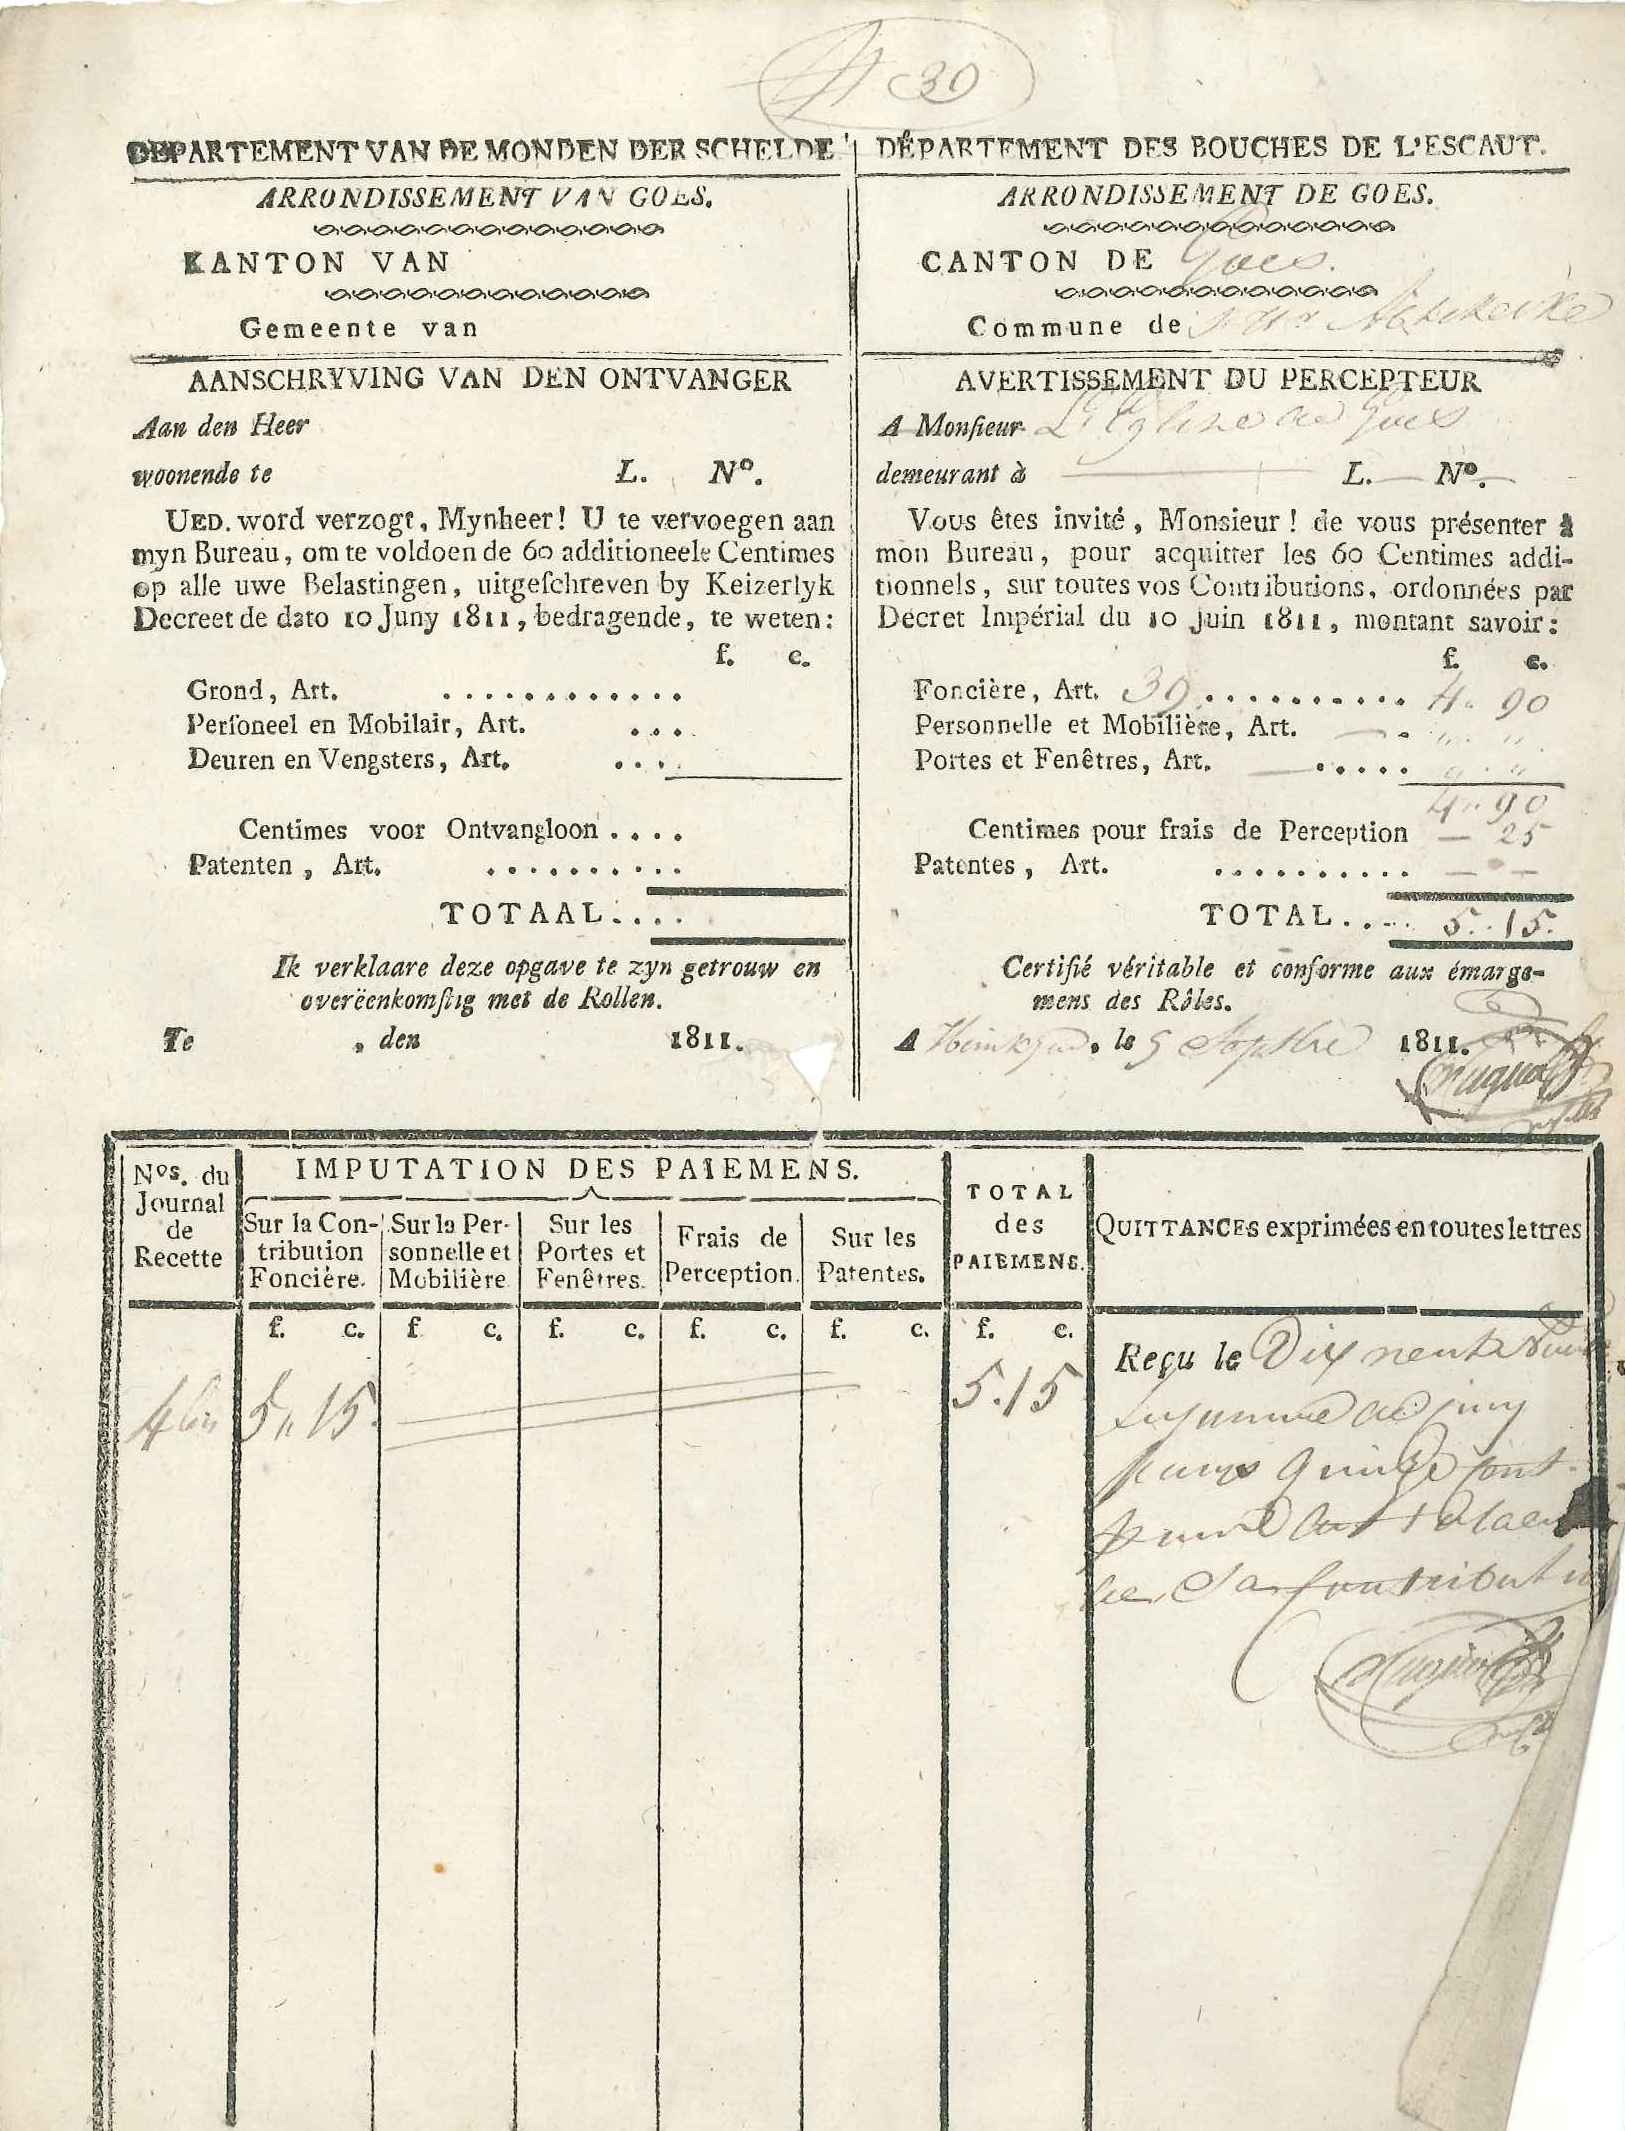 39
DEPARTEMENT VAN DE MONDEN DER SCHELDE
ARRONDISSEMENT VAN GOES.
KANTON VAN
Gemeente van
AANSCHRYVING VAN DEN ONTVANGER
Aan den Heer
woonende te L. Nº.
UED. word verzogt, Mynheer! U te vervoegen aan
myn Bureau, om te voldoen de 60 additioneele Centimes
op alle uwe Belastingen, uitgeſchreven by Keizerlyk
Decreet de dato 10 Juny 1811, bedragende, te weten:
f. c.
Grond, Art. ............
Perſoneel en Mobilair, Art. ...
Deuren en Vengsters, Art. ....
Centimes voor Ontvangloon ....
Patenten, Art. ..........
TOTAAL....
Ik verklaare deze opgave te zyn getrouw en
overëenkomſtig met de Rollen.
Te , den 1811.
DÉPARTEMENT DES BOUCHES DE L'ESCAUT.
ARRONDISSEMENT DE GOES.
CANTON DE Goes.
Commune de
AVERTISSEMENT DU PERCEPTEUR
A Monſieur L'Eglise de Goes
demeurant à — L. — Nº. —
Vous êtes invité, Monsieur! de vous présenter à
mon Bureau, pour acquitter les 60 Centimes addi-
tionnels, sur toutes vos Contributions, ordonnées par
Décret Impérial du 10 Juin 1811, montant savoir:
f. c.
Foncière, Art. 39 .......... 4 " 90
Personnelle et Mobilière, Art. — . " "
Portes et Fenêtres, Art. — ..... " "
4 " 90
Centimes pour frais de Perception — 25
Patentes, Art. .......... — " —
TOTAL..... 5..15.
Certifié véritable et conforme aux émarge-
mens des Rôles.
A , le 5 Septbre 1811.
Nos. du
Journal
de
Recette
IMPUTATION DES PAIEMENS.
Sur la Con-
tribution
Foncière.
Sur la Per-
sonnelle et
Mobilière
Sur les
Portes et
Fenêtres.
Frais de
Perception.
Sur les
Patentes.
TOTAL
des
PAIEMENS.
QUITTANCES exprimées en toutes lettres
f. c. f c. f. c. f. c. f. c. f. c.
5 " 15. 5.15
Reçu le Dix neuf
la somme de cinq
francs quinze cent.
pour
de sa Contribution